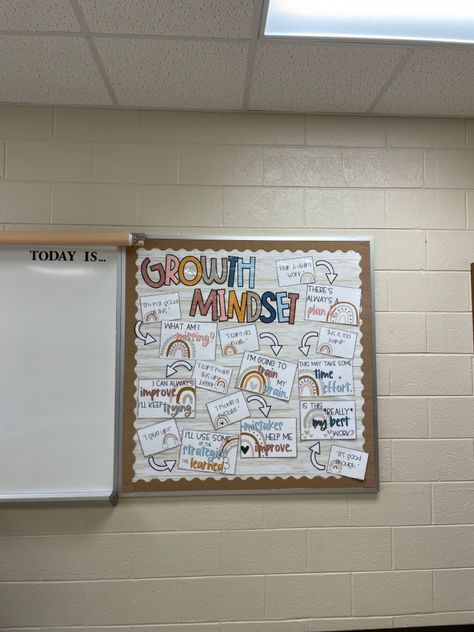 TODAY IS...
GROWTH
MINDSET
"Plan A didn't
work"
THERE'S
ALWAYS A
plan B
"I'm not good
at this."
WHAT AM I
missing?
"I can't do
this is
too hard"
I'M GOING TO
train
my
BRAIN.
THIS MAY TAKE
some
time
effort.
I CAN ALWAYS
improve
I'LL KEEP
trying
"I made a
mistake"
IS THIS REALLY
my best
WORK?
"I give up!"
I'LL USE SOME
OF THE
strategies
I've
learned
mistakes
HELP ME
improve.
"It's good
enough"